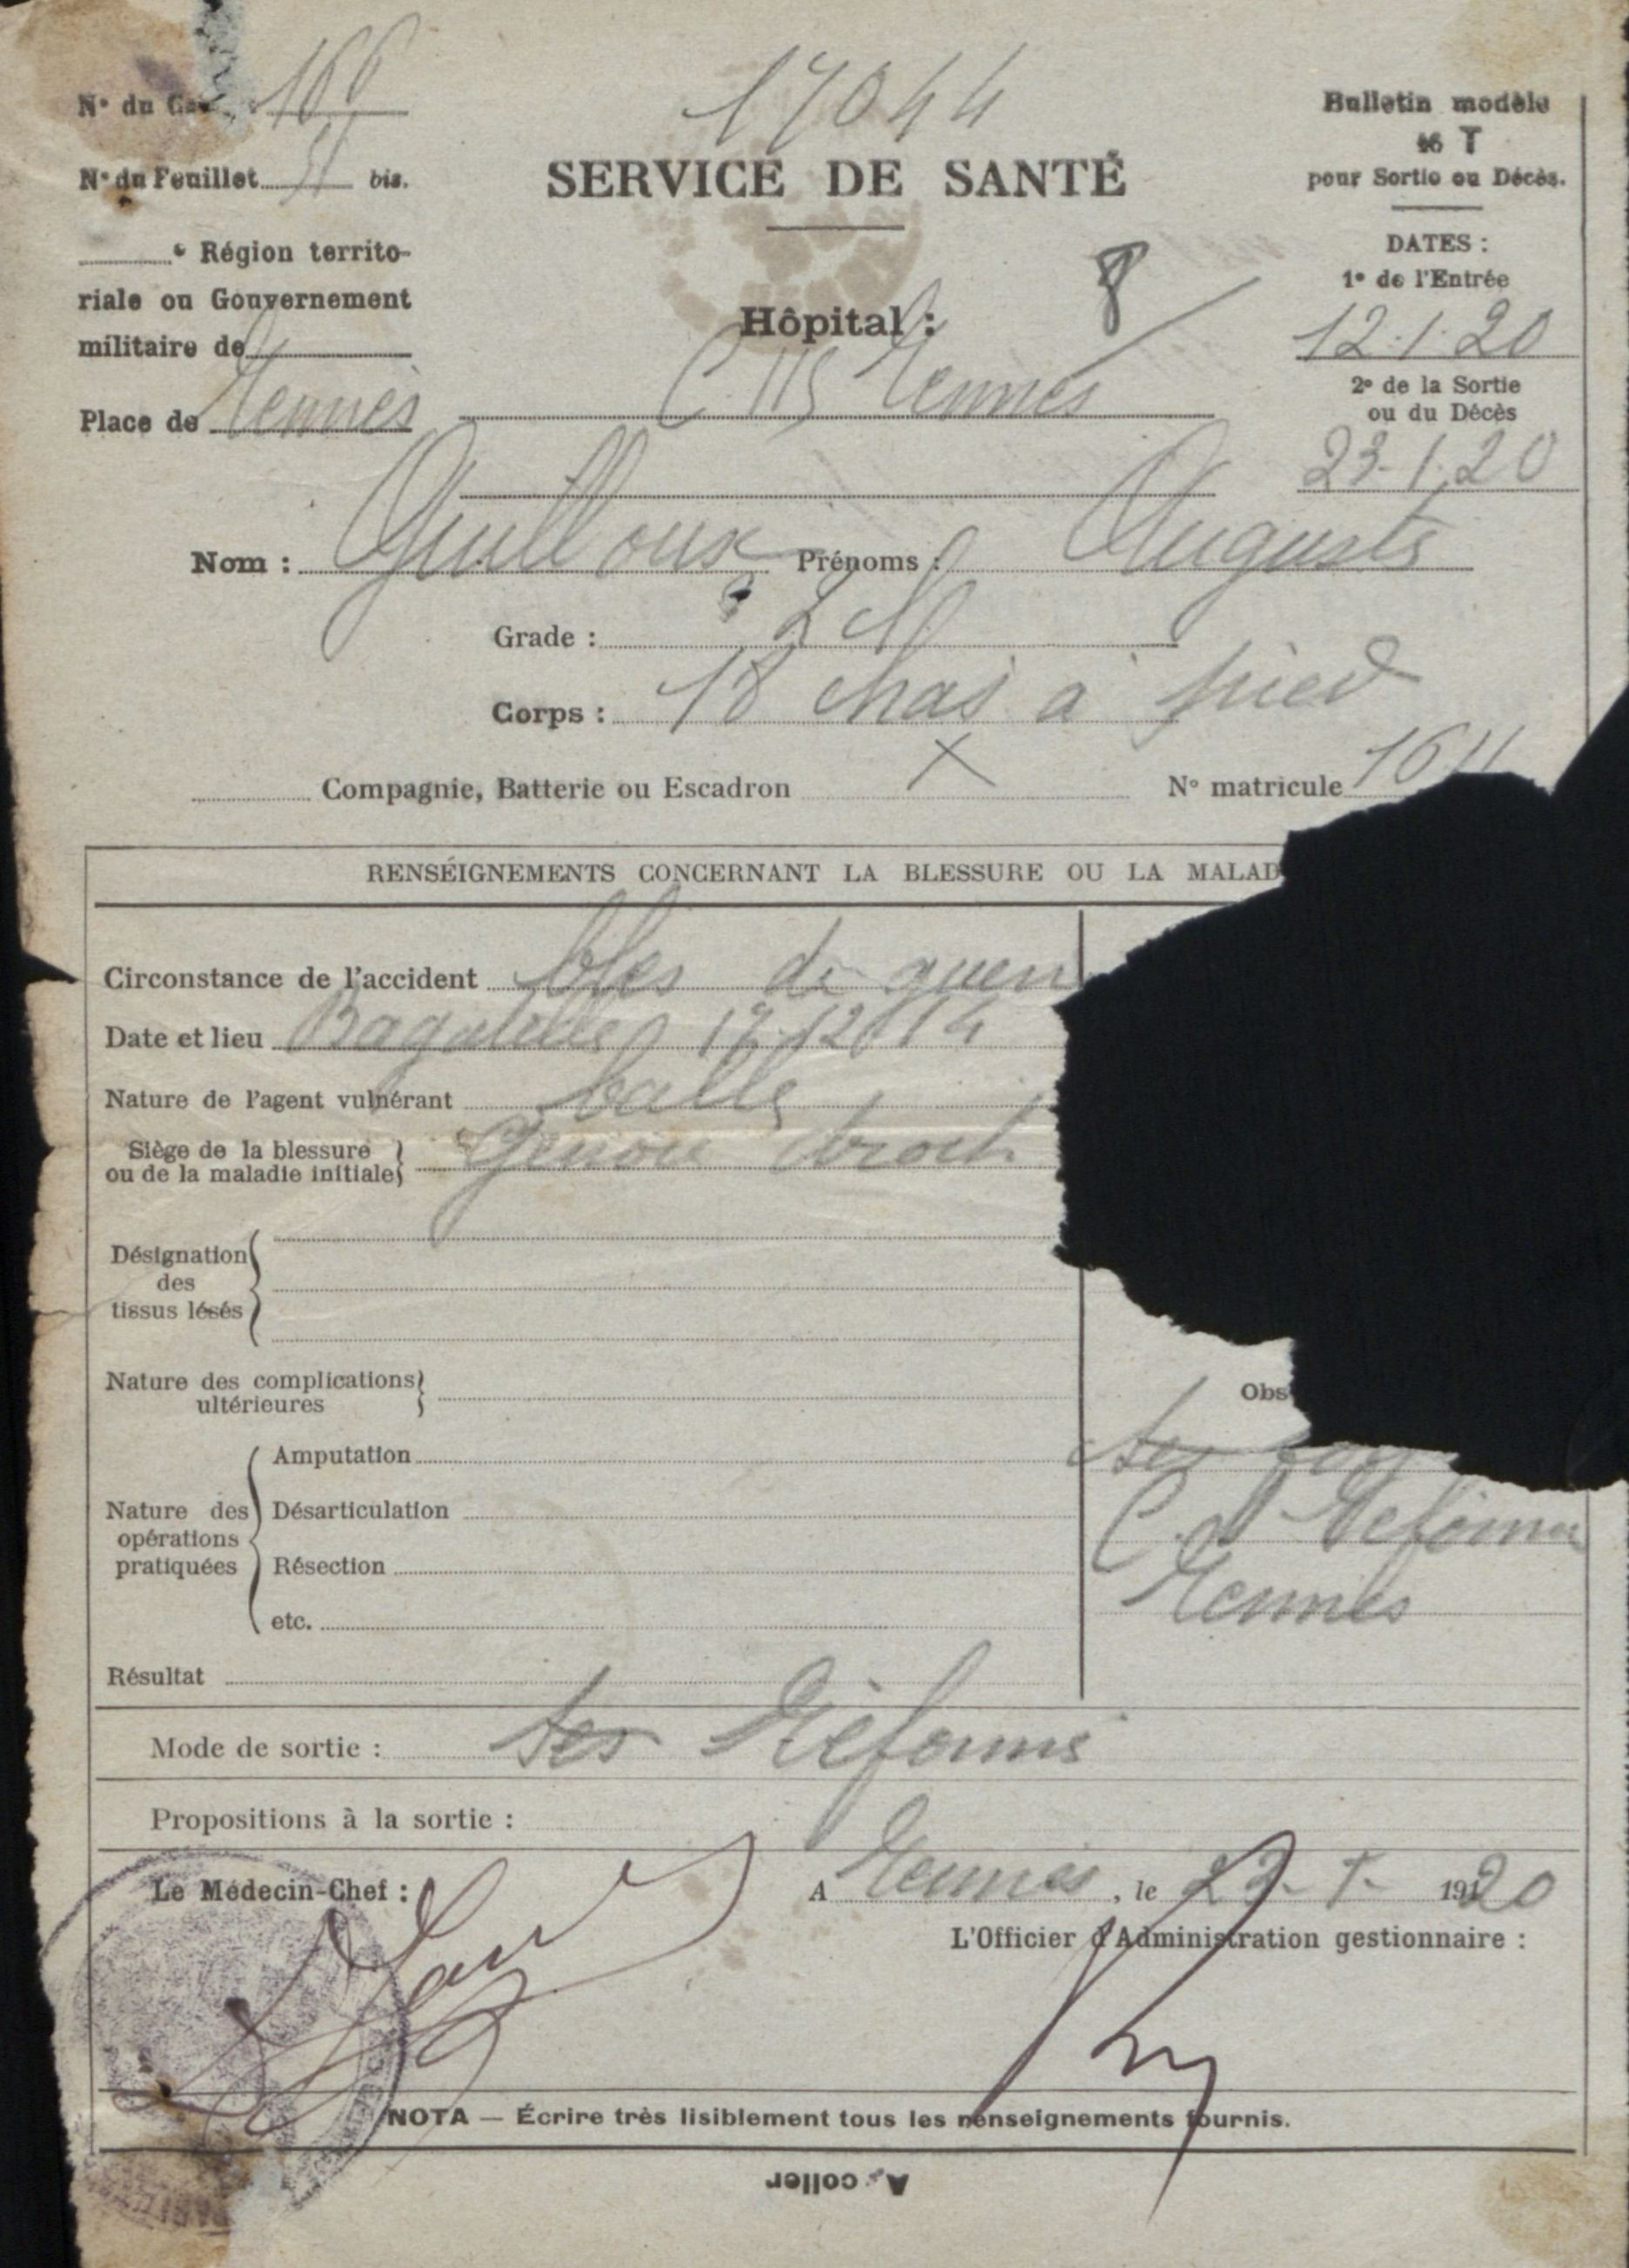 17044
N° du Ca 166
N° du Feuillet 51 bis.
° Région territo-
riale ou Gouvernement
militaire de
Rennes
Place de
SERVICE DE SANTÉ
Hôpital : 8
Rennes
Bulletin modèle
46 T
pour Sortie ou Décès.
DATES :
1° de l'Entrée
12.1.20
2° de la Sortie
ou du Décès
23.1.20
Nom : Guilloux Prénoms : Auguste
Grade : 2 cl
Corps : 18 chas à pied
Compagnie, Batterie ou Escadron X N° matricule 1611
RENSÉIGNEMENTS CONCERNANT LA BLESSURE OU LA MALAD
Circonstance de l'accident bles de guerr
Date et lieu Bagatelle 17.12.14
Nature de l'agent vulnérant balle
Siège de la blessure
ou de la maladie initiale Genou droit
Désignation
des
tissus lésés
Nature des complications
ultérieures
Nature des
opérations
pratiquées
Amputation
Désarticulation
Résection
etc.
Obs
C. d Reforme
Rennes
Résultat
Mode de sortie : Réforme
Propositions à la sortie :
Le Médecin-Chef :
A Rennes, le 23-1-1920
L'Officier d'Administration gestionnaire :
NOTA — Écrire très lisiblement tous les renseignements fournis.
A coller